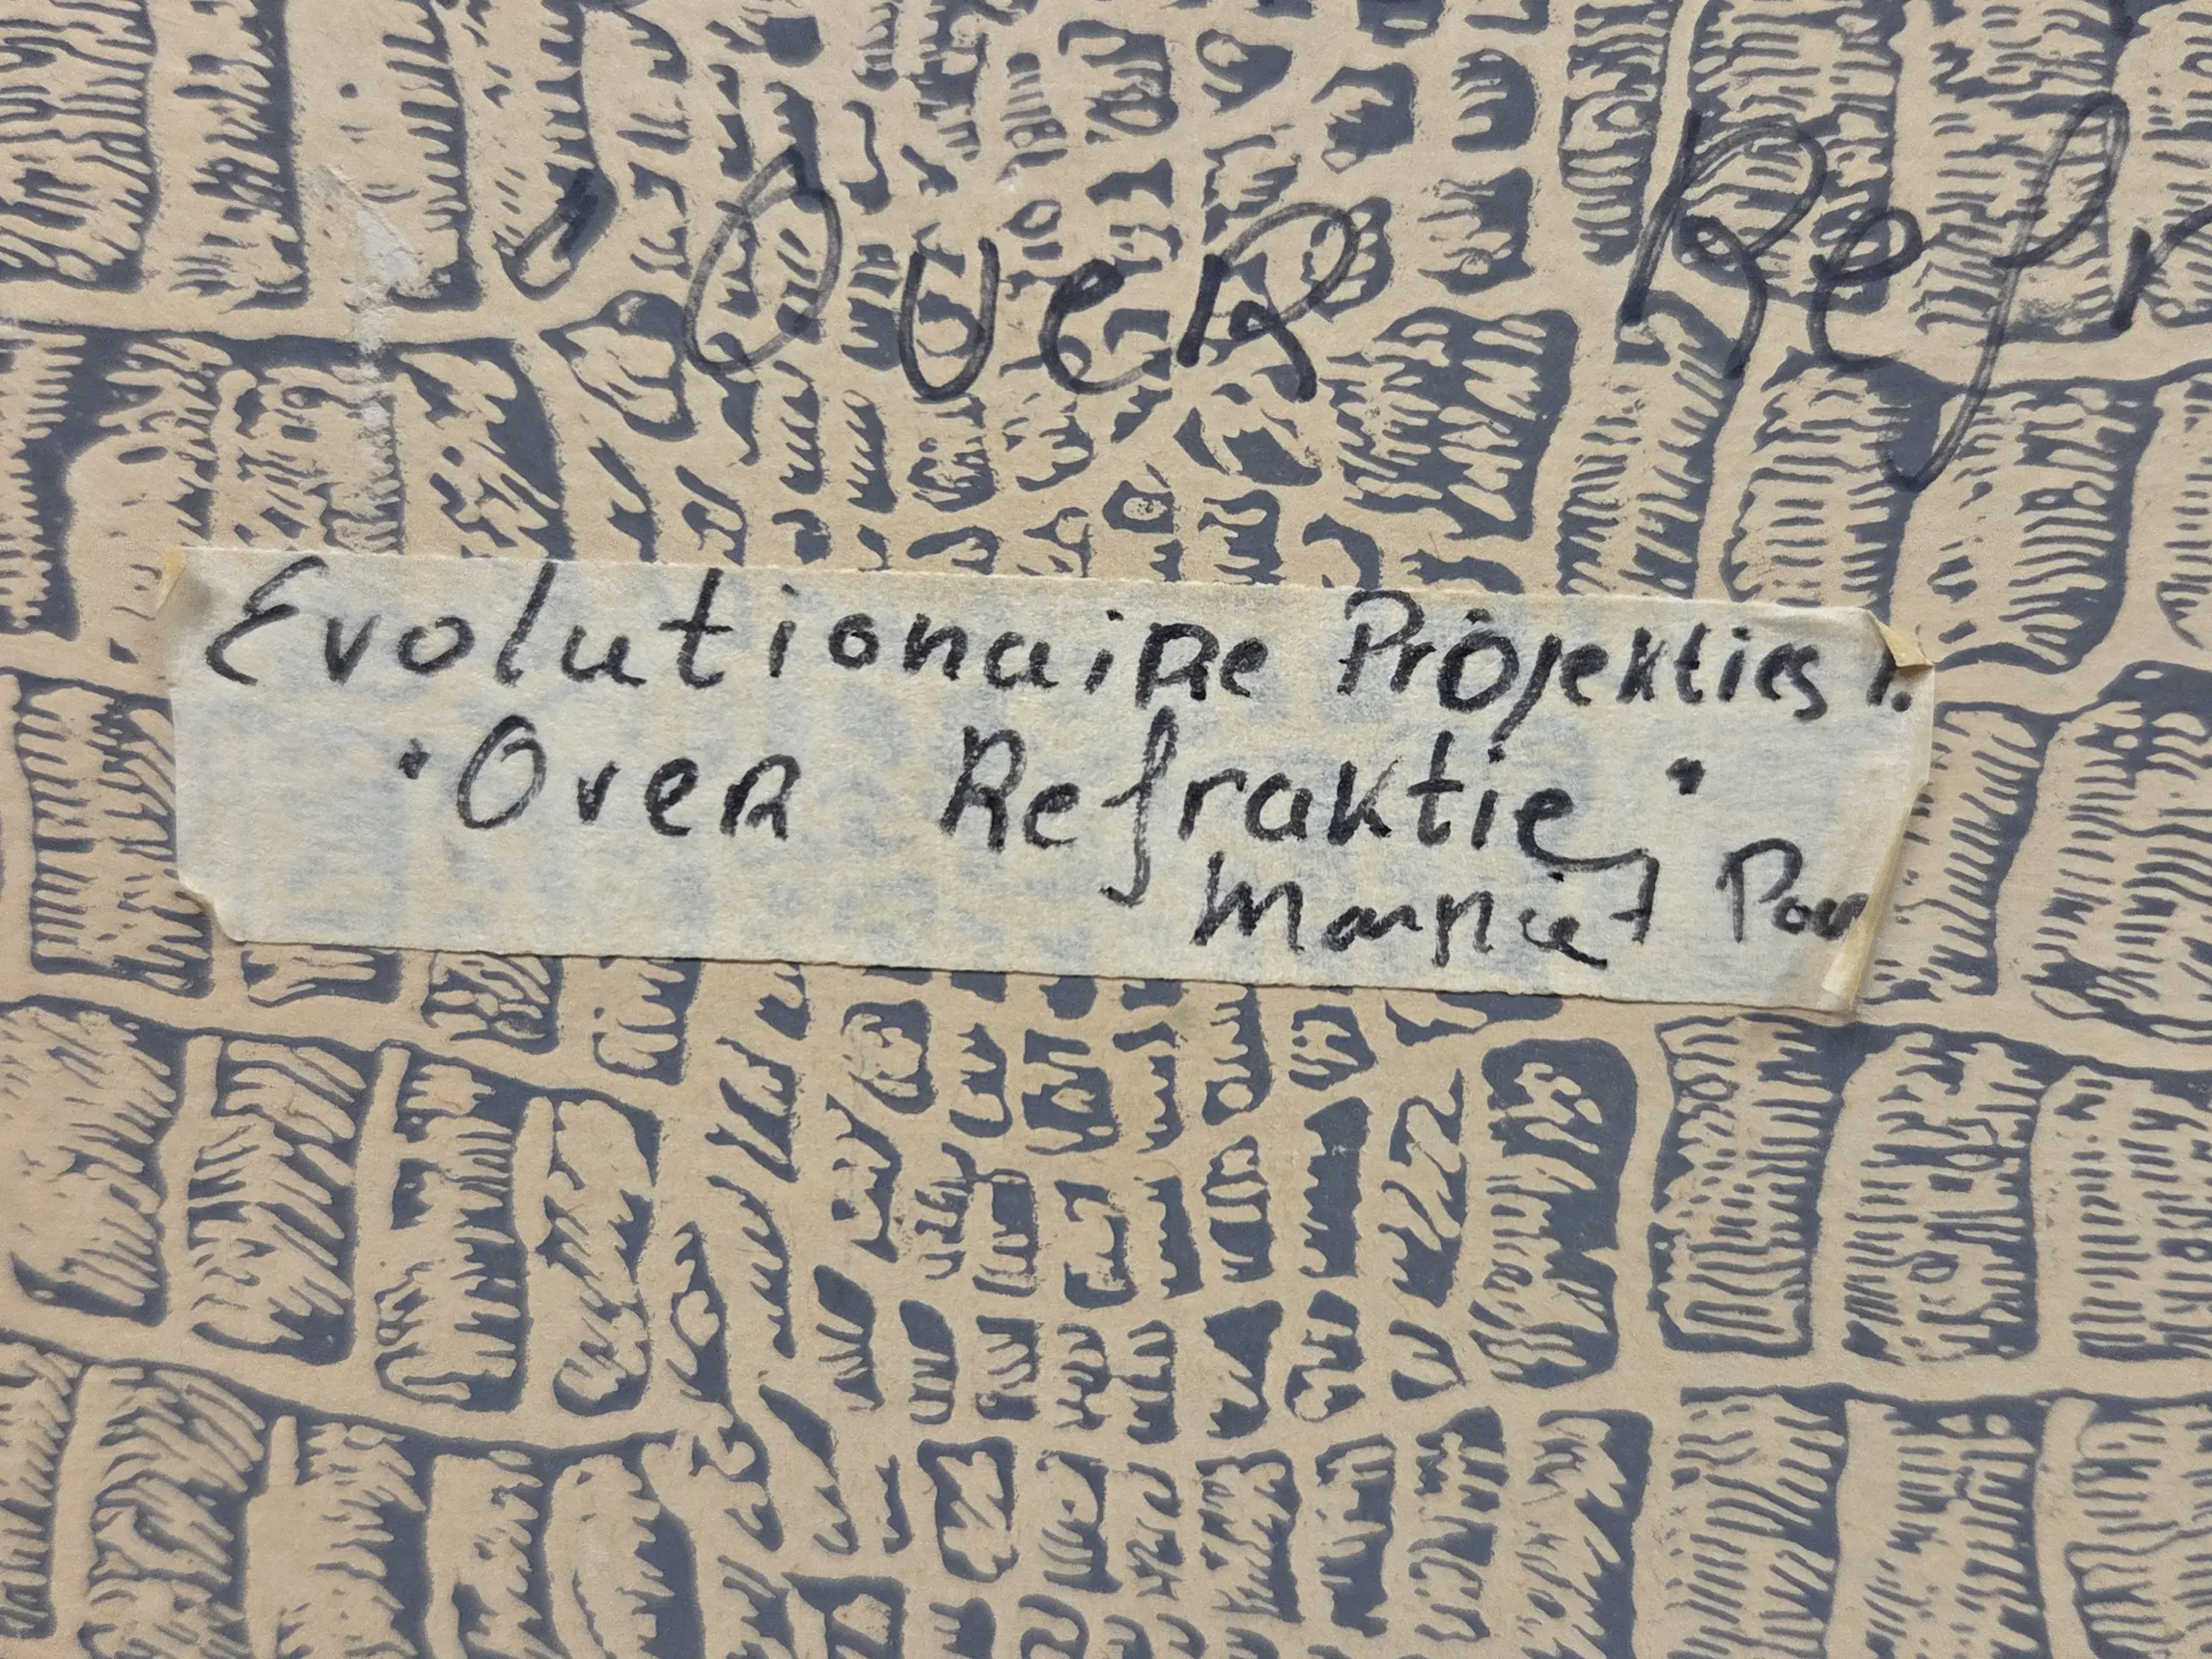 "Over Refr
Evolutionaire Projekties 1.
"Over Refraktie"